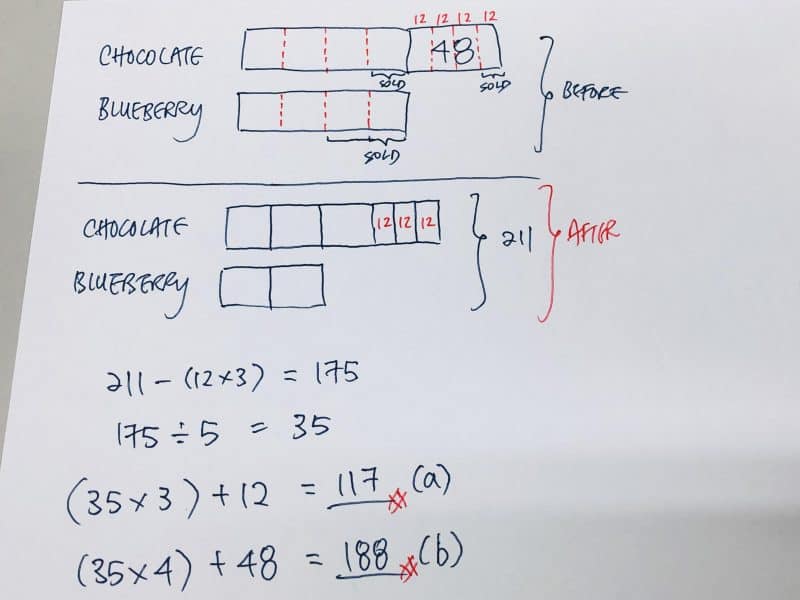 12 12 12 12
CHOCOLATE 48
SOLD SOLD
BLUEBERRY } BEFORE
SOLD
CHOCOLATE 12 12 12
} 211 } AFTER
BLUEBERRY
211 - (12×3) = 175
175 ÷ 5 = 35
(35×3) + 12 = 117 (a)
(35×4) + 48 = 188 (b)